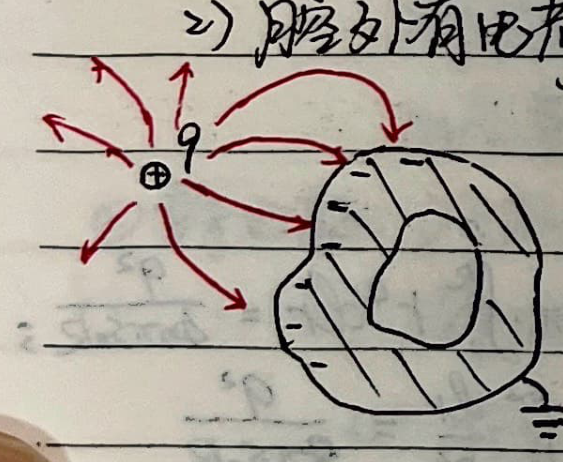 2) 腔外有电荷
q
⊕